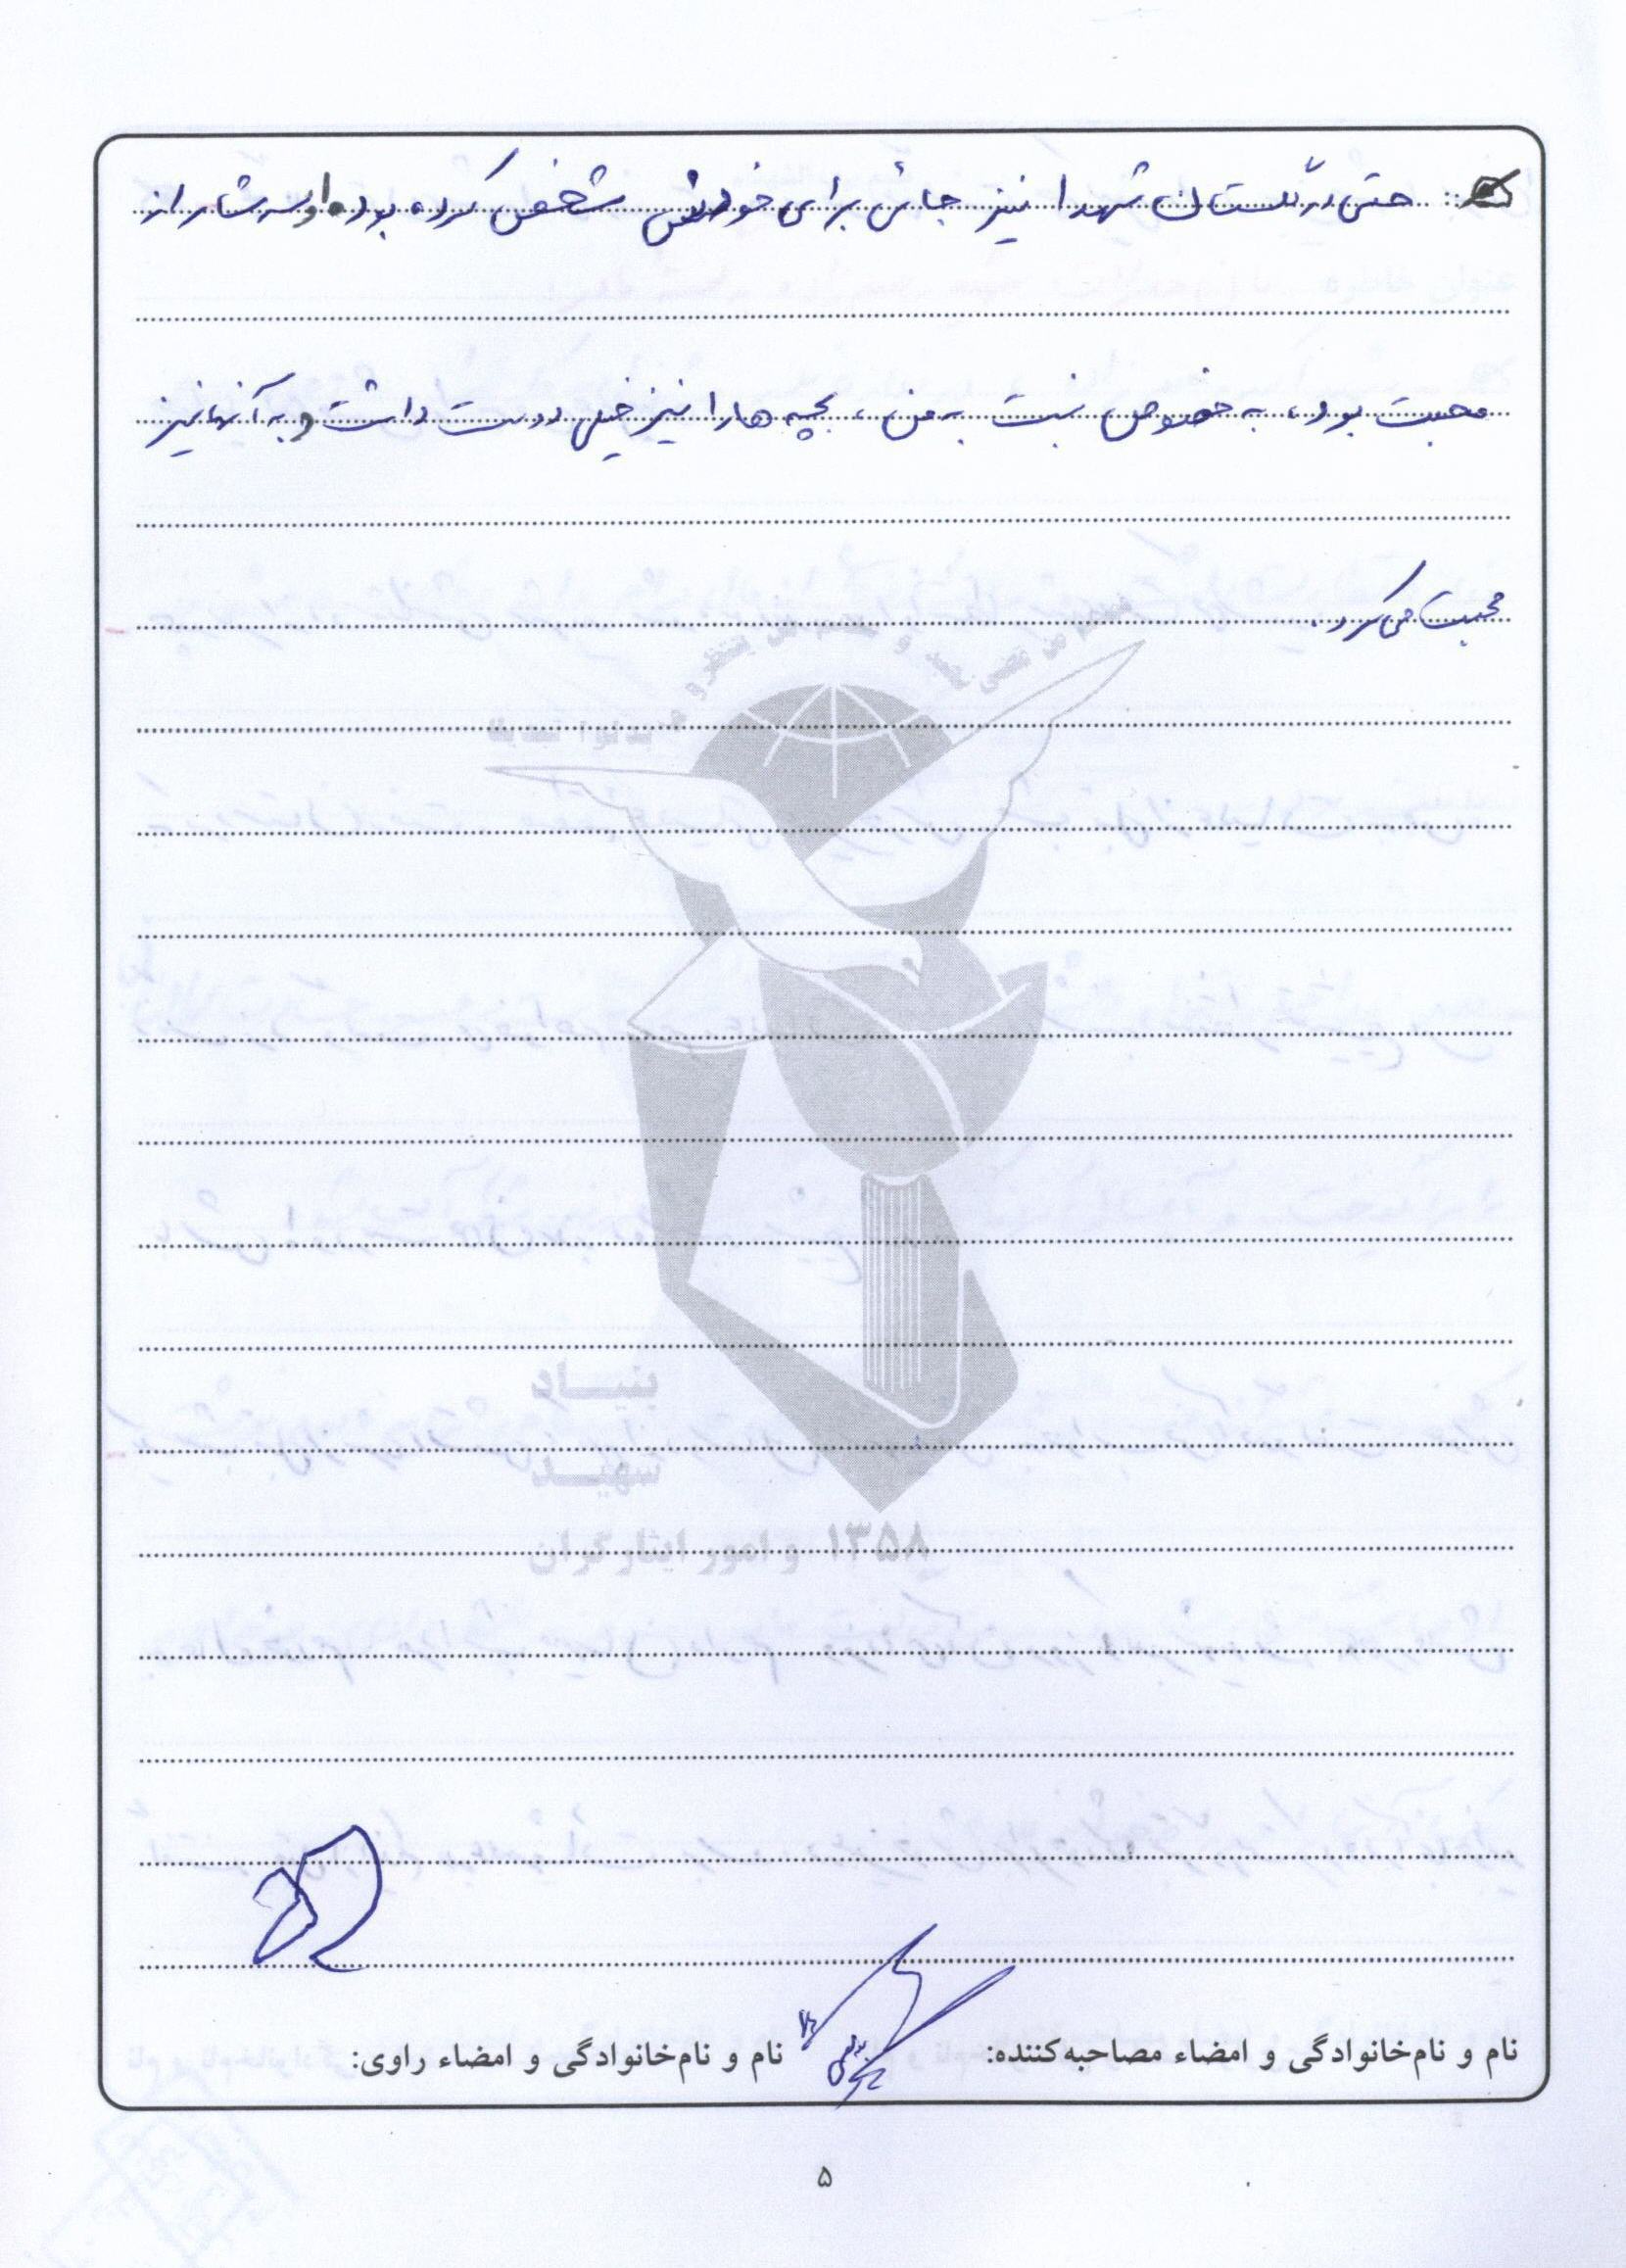 حتی در گلستان شهدا نیز جائی برای خودش مشخص کرده بود. او سرشار از
محبت بود، به خصوص نسبت به من، بچه ها را نیز خیلی دوست داشت و به آنها نیز
محبت می‌کرد.
بنیاد
شهید
۱۳۵۸ و امور ایثارگران
نام و نام‌خانوادگی و امضاء مصاحبه‌کننده:
نام و نام‌خانوادگی و امضاء راوی:
۵